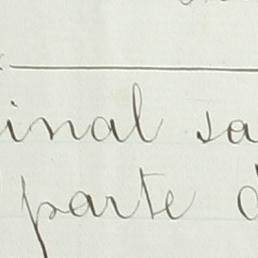 inal sa
parte d